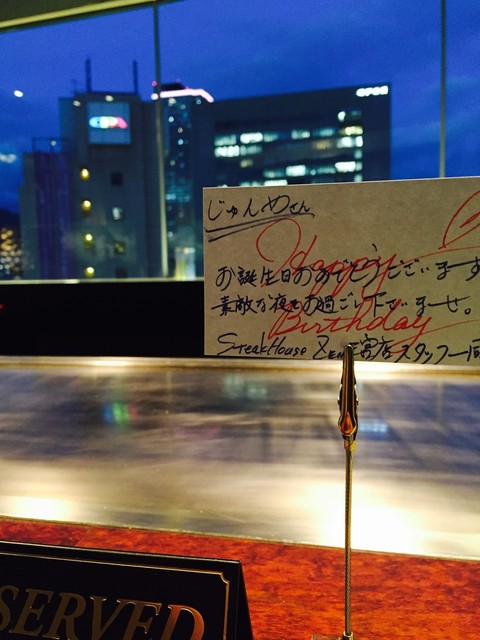 じゅんめさん
お誕生日おめでとうございます
素敵な夜をお過ごし下さいませ。
Happy
Birthday
SteakHouse Zen三宮店スタッフ一同
SERVED